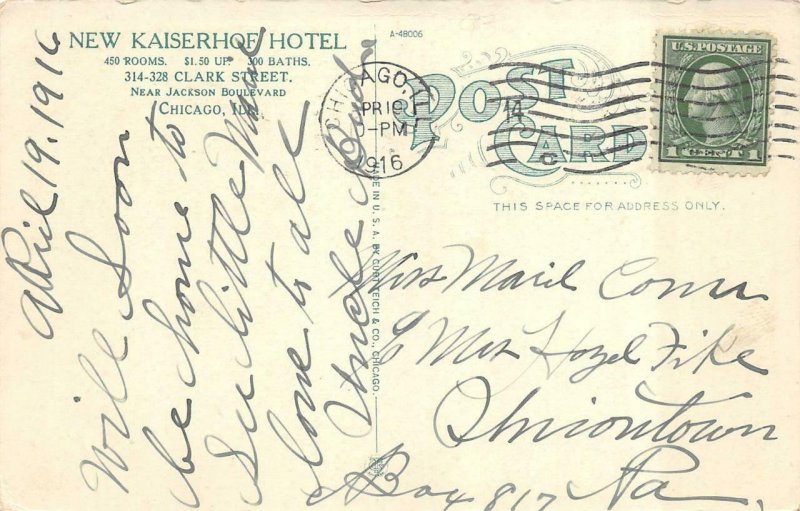 NEW KAISERHOF HOTEL
450 ROOMS. $1.50 UP. 300 BATHS.
314-328 CLARK STREET.
NEAR JACKSON BOULEVARD
CHICAGO, ILL.
A-48006
POST
CARD
THIS SPACE FOR ADDRESS ONLY.
CHICAGO, ILL
APR 19
-PM
1916
14
U.S. POSTAGE
1 CENT 1
MADE IN U. S. A. BY CURT TEICH & CO., CHICAGO.
April 19. 1916
Will Soon
be home to
See little
love to all
Uncle
Miss
% Mrs Hazel Fike
Uniontown
Box 817 Pa.